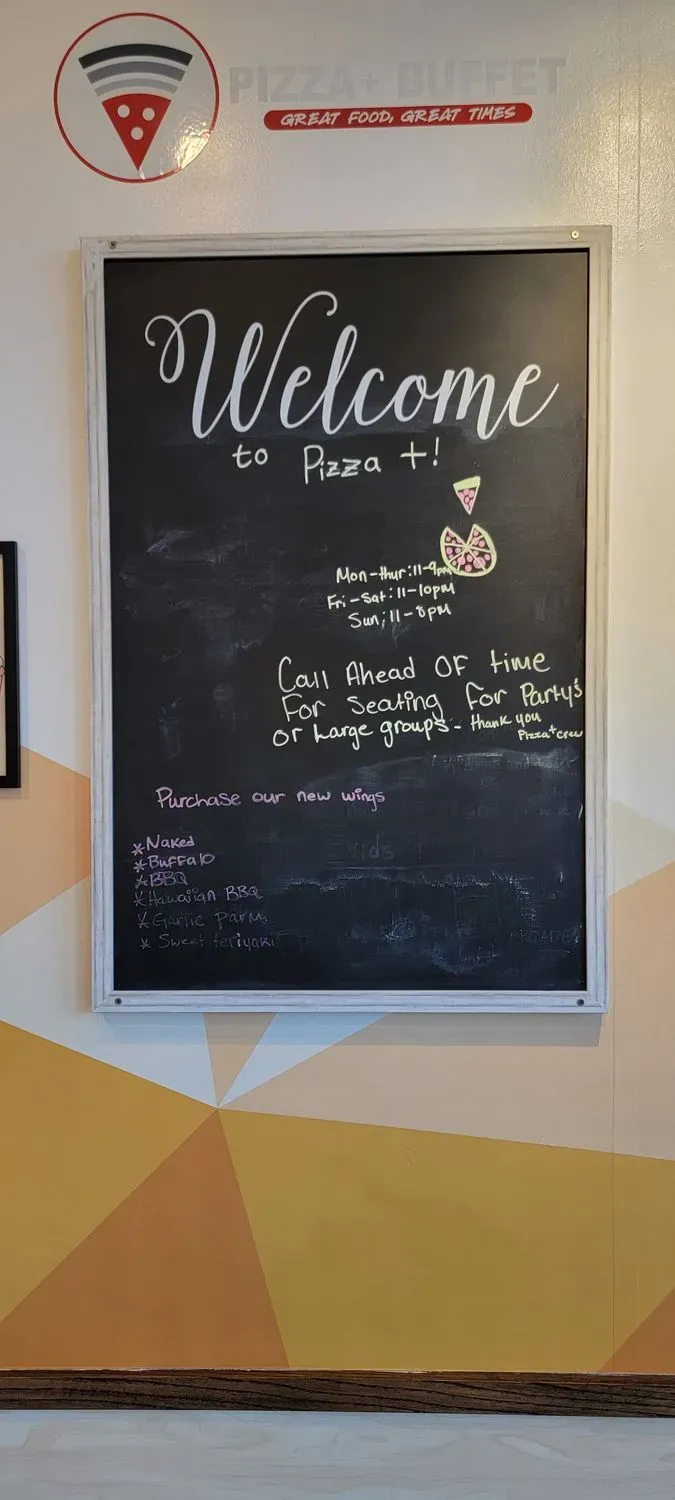 PIZZA+ BUFFET
GREAT FOOD, GREAT TIMES
Welcome
to Pizza +!
Mon-thur:11-9pm
Fri-Sat:11-10pm
Sun;11-8pm
Call Ahead OF time
For Seating For Party's
or Large groups- thank you
Pizza+crew
Purchase our new wings
*Naked
*Buffalo
*BBQ
*Hawaiian BBQ
*Garlic Parm
*Sweet teriyaki